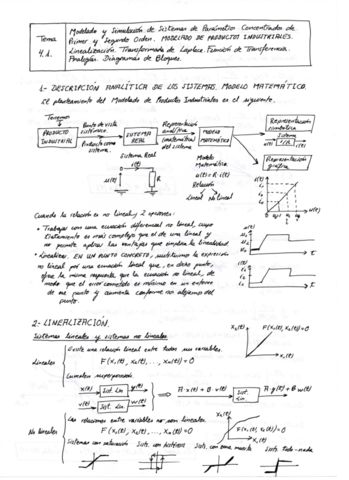 Tema 4.1.
Modelado y Simulación de Sistemas de Parámetros Concentrados de
Primer y Segundo Orden. MODELADO DE PRODUCTOS INDUSTRIALES.
Linealización. Transformada de Laplace. Función de Transferencia.
Analogías. Diagramas de Bloques.
1- DESCRIPCIÓN ANALÍTICA DE LOS SISTEMAS. MODELO MATEMÁTICO.
El planteamiento del Modelado de Productos Industriales es el siguiente.
Tenemos
PRODUCTO INDUSTRIAL
Punto de vista sistémico.
Producto como sistema.
SISTEMA REAL
Representación analítica (matemática) del sistema
MODELO MATEMÁTICO
Representación simbólica
Sistema
Representación gráfica
Sistema Real
i(t)
u(t)
R
Modelo Matemático
u(t) = R·i(t)
Relación
Lineal No lineal
i(t)
u(t)
Cuando la relación es no lineal, 2 opciones:
• Trabajar con una ecuación diferencial no lineal, cuyo
tratamiento es más complejo que el de una lineal y
no puede aplicar las ventajas que implica la linealidad.
• Linealizar, EN UN PUNTO CONCRETO, sustituimos la expresión
no lineal por una ecuación lineal que, en dicho punto,
dé la misma respuesta que la ecuación no lineal, de
modo que el error cometido es mínimo en un entorno
de ese punto y aumenta conforme nos alejamos del
punto.
2- LINEALIZACIÓN.
Sistemas lineales y sistemas no lineales
Lineales
Existe una relación lineal entre todas sus variables.
F(x₁(t), x₂(t), ..., xₙ(t)) = 0
Cumplen superposición
x(t) Sist. Lin y(t)
v(t) Sist. Lin w(t)
A·x(t) + B·v(t) Sist. Lin. A·y(t) + B·w(t)
x₂(t)
F(x₁(t), x₂(t)) = 0
x₁(t)
No lineales
Las relaciones entre variables no son lineales.
F(x₁(t), x₂(t), ..., xₙ(t)) = 0
x₂(t)
F(x₁(t), x₂(t)) = 0
x₁(t)
Sistemas con saturación Sist. con histéresis Sist. con zona muerta Sist. todo-nada